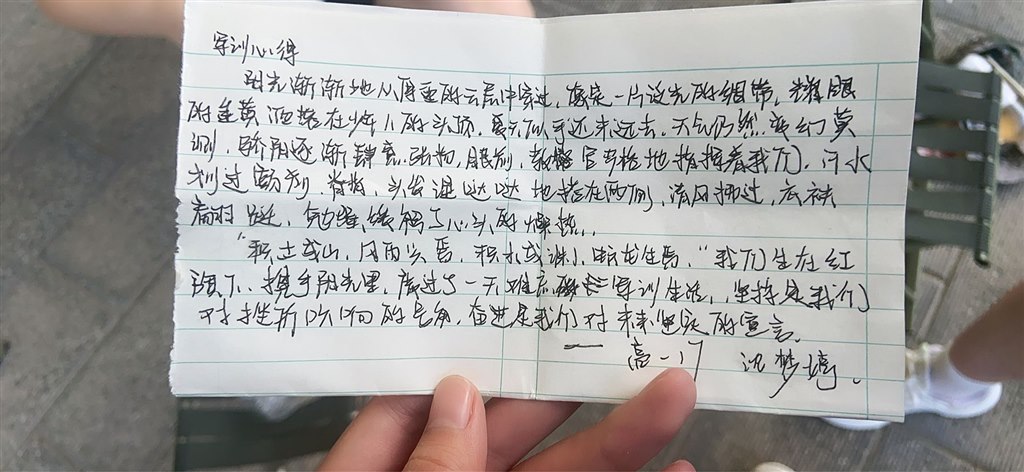 军训心得
阳光渐渐地从厚重的云层中穿过,像是一片泛光的绸带,耀眼
的金黄洒落在少年人的头顶,夏天似乎还未远去,天气仍然变幻莫
测,骄阳逐渐张扬,眼前,教官严格地指挥着我们,汗水
划过额前,脊背,头发湿哒哒地搭在两侧,清风挪过,衣袂
缓解了心头的燥热..
“积土成山,风雨兴焉,积水成渊,蛟龙生焉,”我们生在红
旗下,携手阳光里,度过了一天难忘军训生活,坚持是我们
对挫折吹响的号角,奋进是我们对未来坚定的宣言。
— 高一17 沈梦琦.